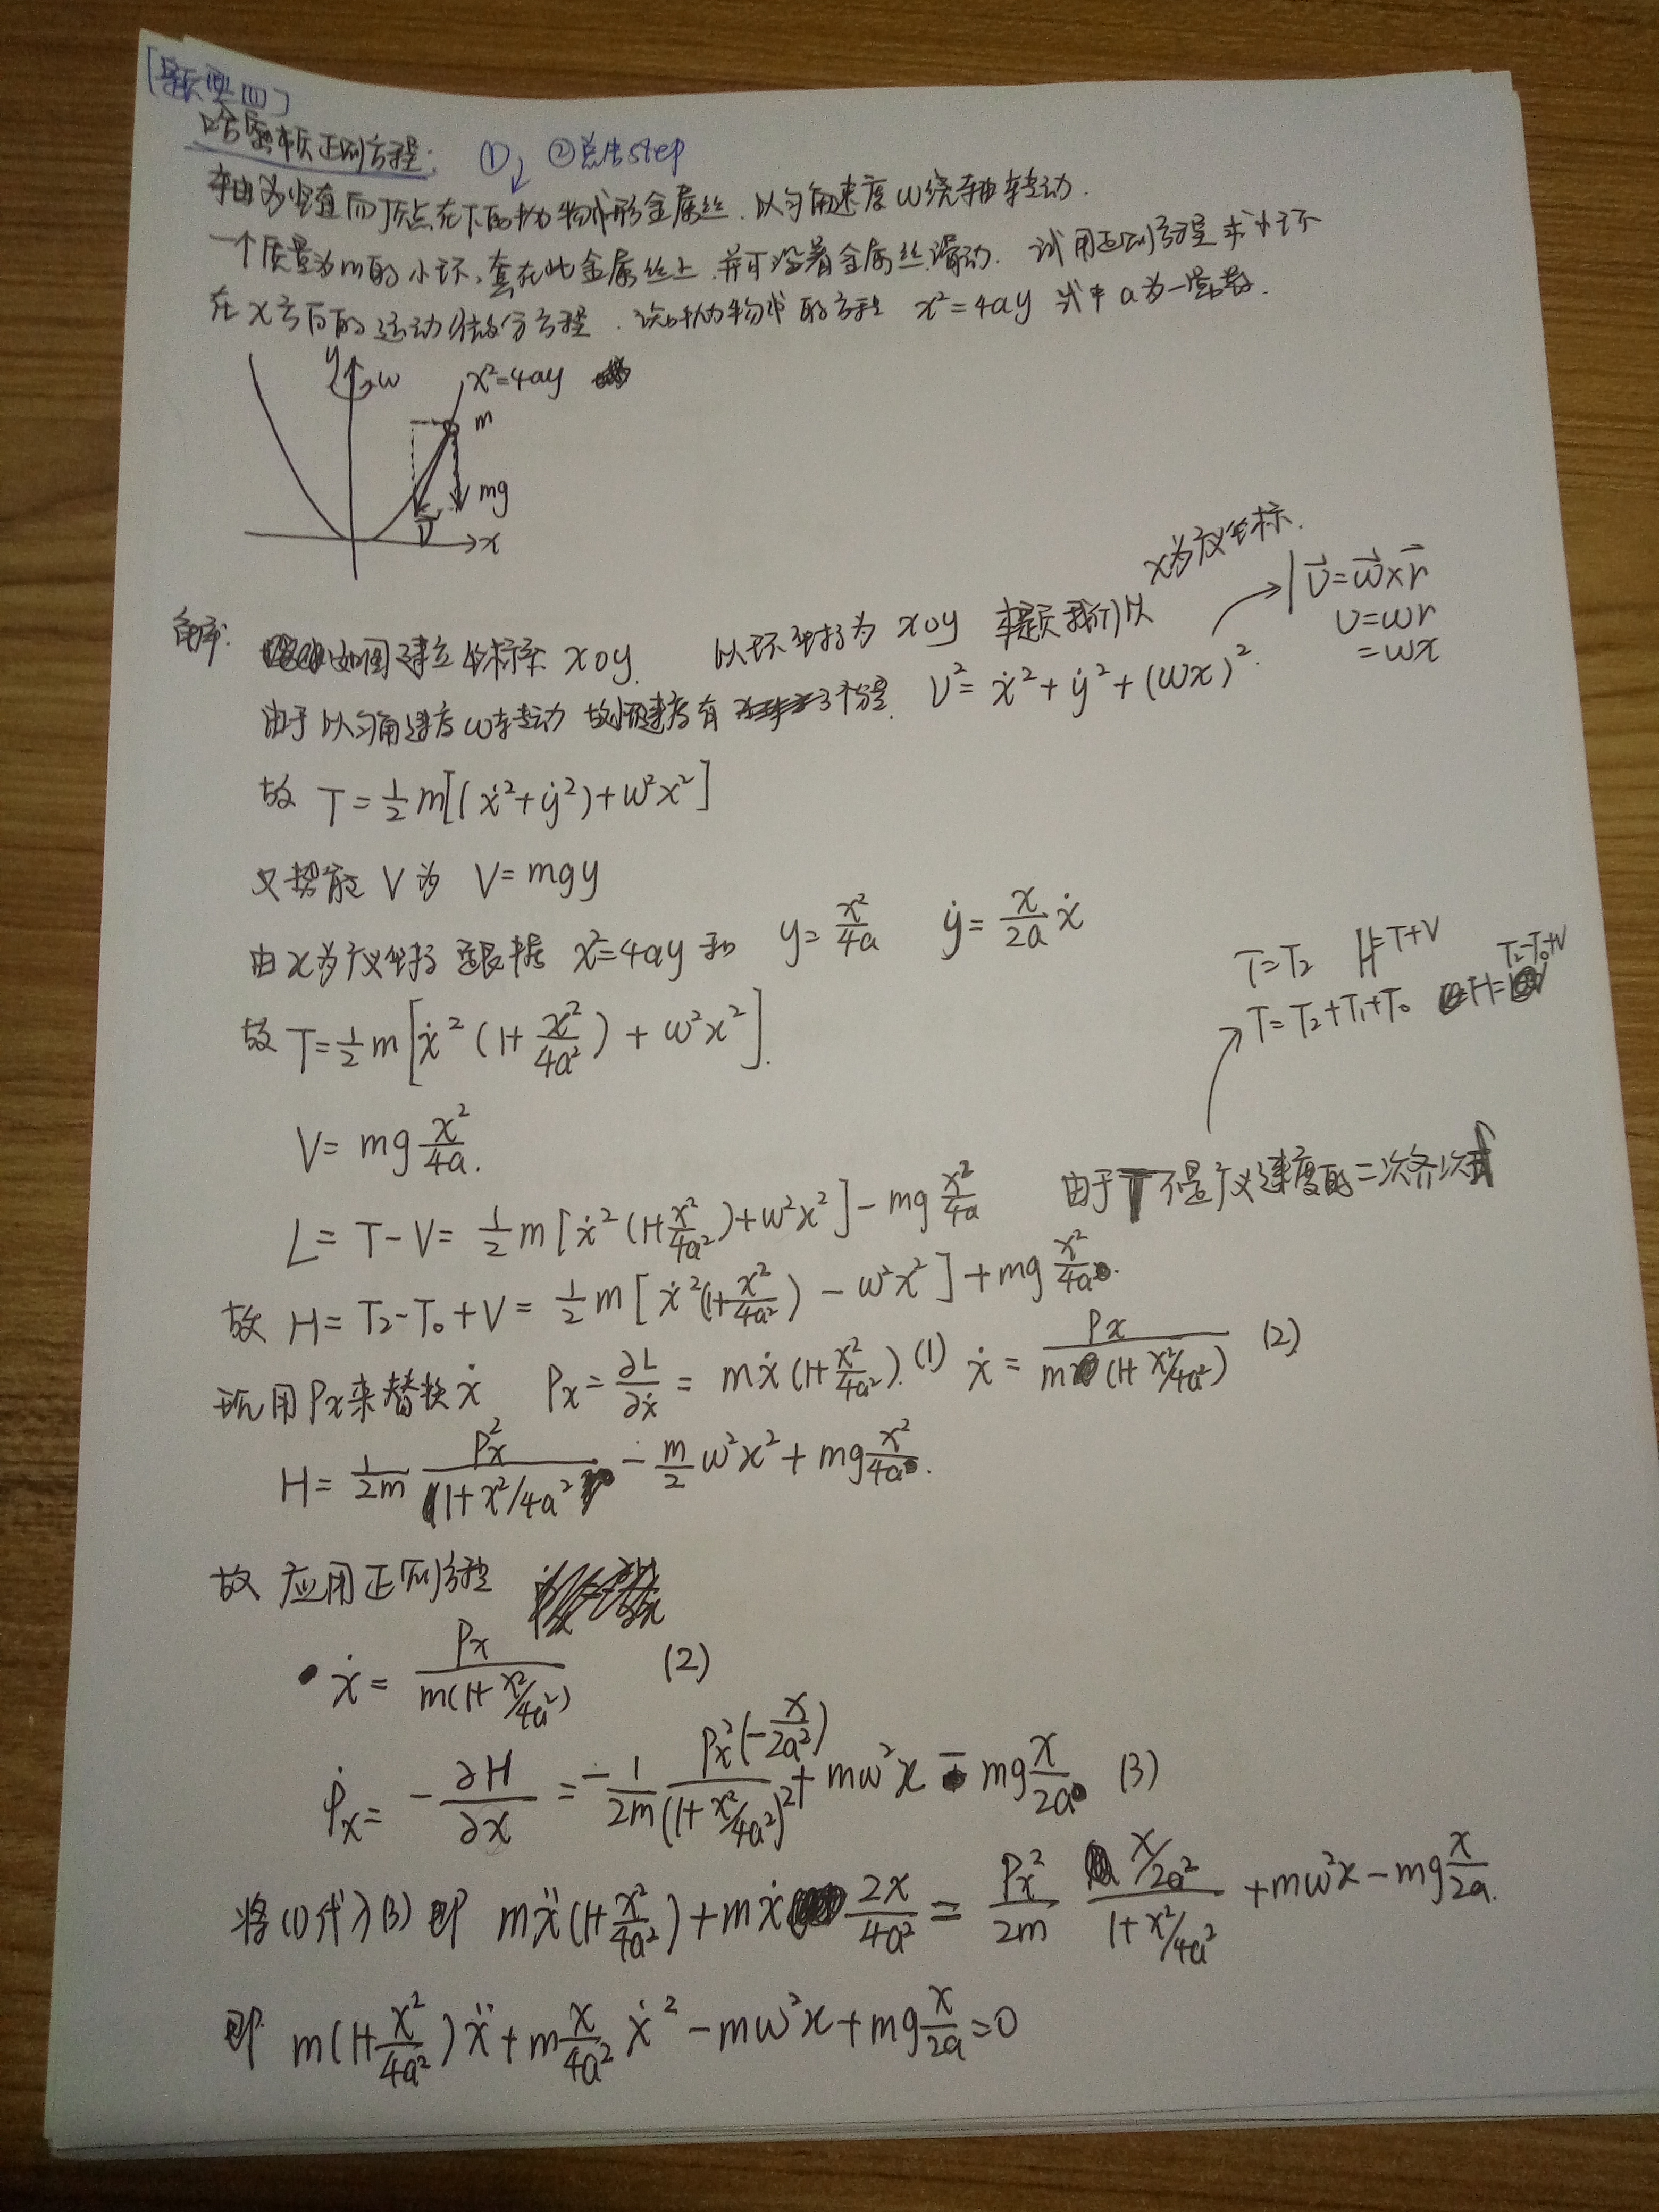 [题型四]
哈密顿正则方程: ①↓ ②总结step
轴为竖直而顶点在下的抛物线形金属丝,以匀角速度ω绕轴转动.
一个质量为m的小环,套在此金属丝上,并可沿着金属丝滑动. 试用正则方程求小环
在x方向的运动微分方程. 该抛物线的方程 x²=4ay 式中a为一常数.
y ω x²=4ay
m
mg
V x
x为广义坐标.
解: 如图建立坐标系 xoy. 以环坐标为 xoy 本题我们以
v⃗=ω⃗×r⃗
v=ωr
=ωx
由于以匀角速度ω转动 故速度有3个分量. v²=ẋ²+ẏ²+(ωx)².
故 T=½m[(ẋ²+ẏ²)+ω²x²]
又势能V为 V=mgy
由x为广义坐标 根据 x²=4ay 和 y=x²/4a ẏ=(x/2a)ẋ
T=T₂ H=T+V
T=T₂+T₁+T₀ H=T₂-T₀+V
故 T=½m[ẋ²(1+x²/4a²)+ω²x²].
V=mg x²/4a.
L=T-V=½m[ẋ²(1+x²/4a²)+ω²x²]-mg x²/4a 由于T不是广义速度的二次齐次式
故 H=T₂-T₀+V=½m[ẋ²(1+x²/4a²)-ω²x²]+mg x²/4a.
现用Px来替换ẋ Px=∂L/∂ẋ=mẋ(1+x²/4a²).(1) ẋ=Px/m(1+x²/4a²) (2)
H=1/2m Px²/(1+x²/4a²)-m/2 ω²x²+mg x²/4a.
故 应用正则方程
ẋ=Px/m(1+x²/4a²) (2)
Ṗx=-∂H/∂x=-1/2m Px²(-x/2a²)/(1+x²/4a²)²+mω²x-mg x/2a (3)
将(1)代入(3)即 mẍ(1+x²/4a²)+mẋ 2x/4a²=Px²/2m x/2a²/1+x²/4a²+mω²x-mg x/2a.
即 m(1+x²/4a²)ẍ+m x/4a² ẋ²-mω²x+mg x/2a=0